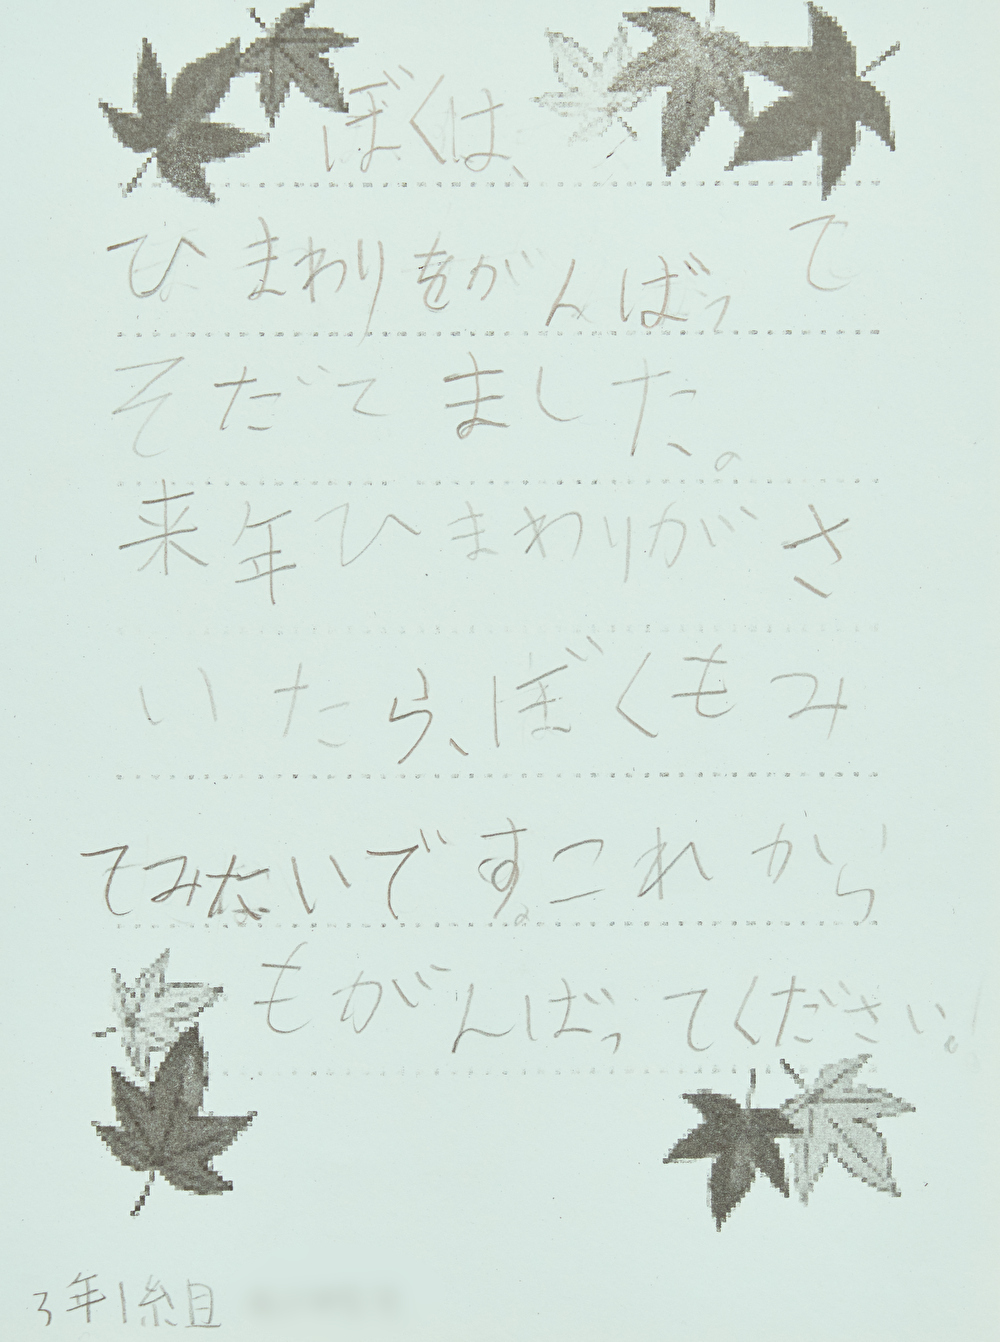 ぼくは、
ひまわりをがんばって
そだてました。
来年ひまわりがさ
いたら、ぼくもみ
てみたいです。これから
もがんばってください。
3年1組